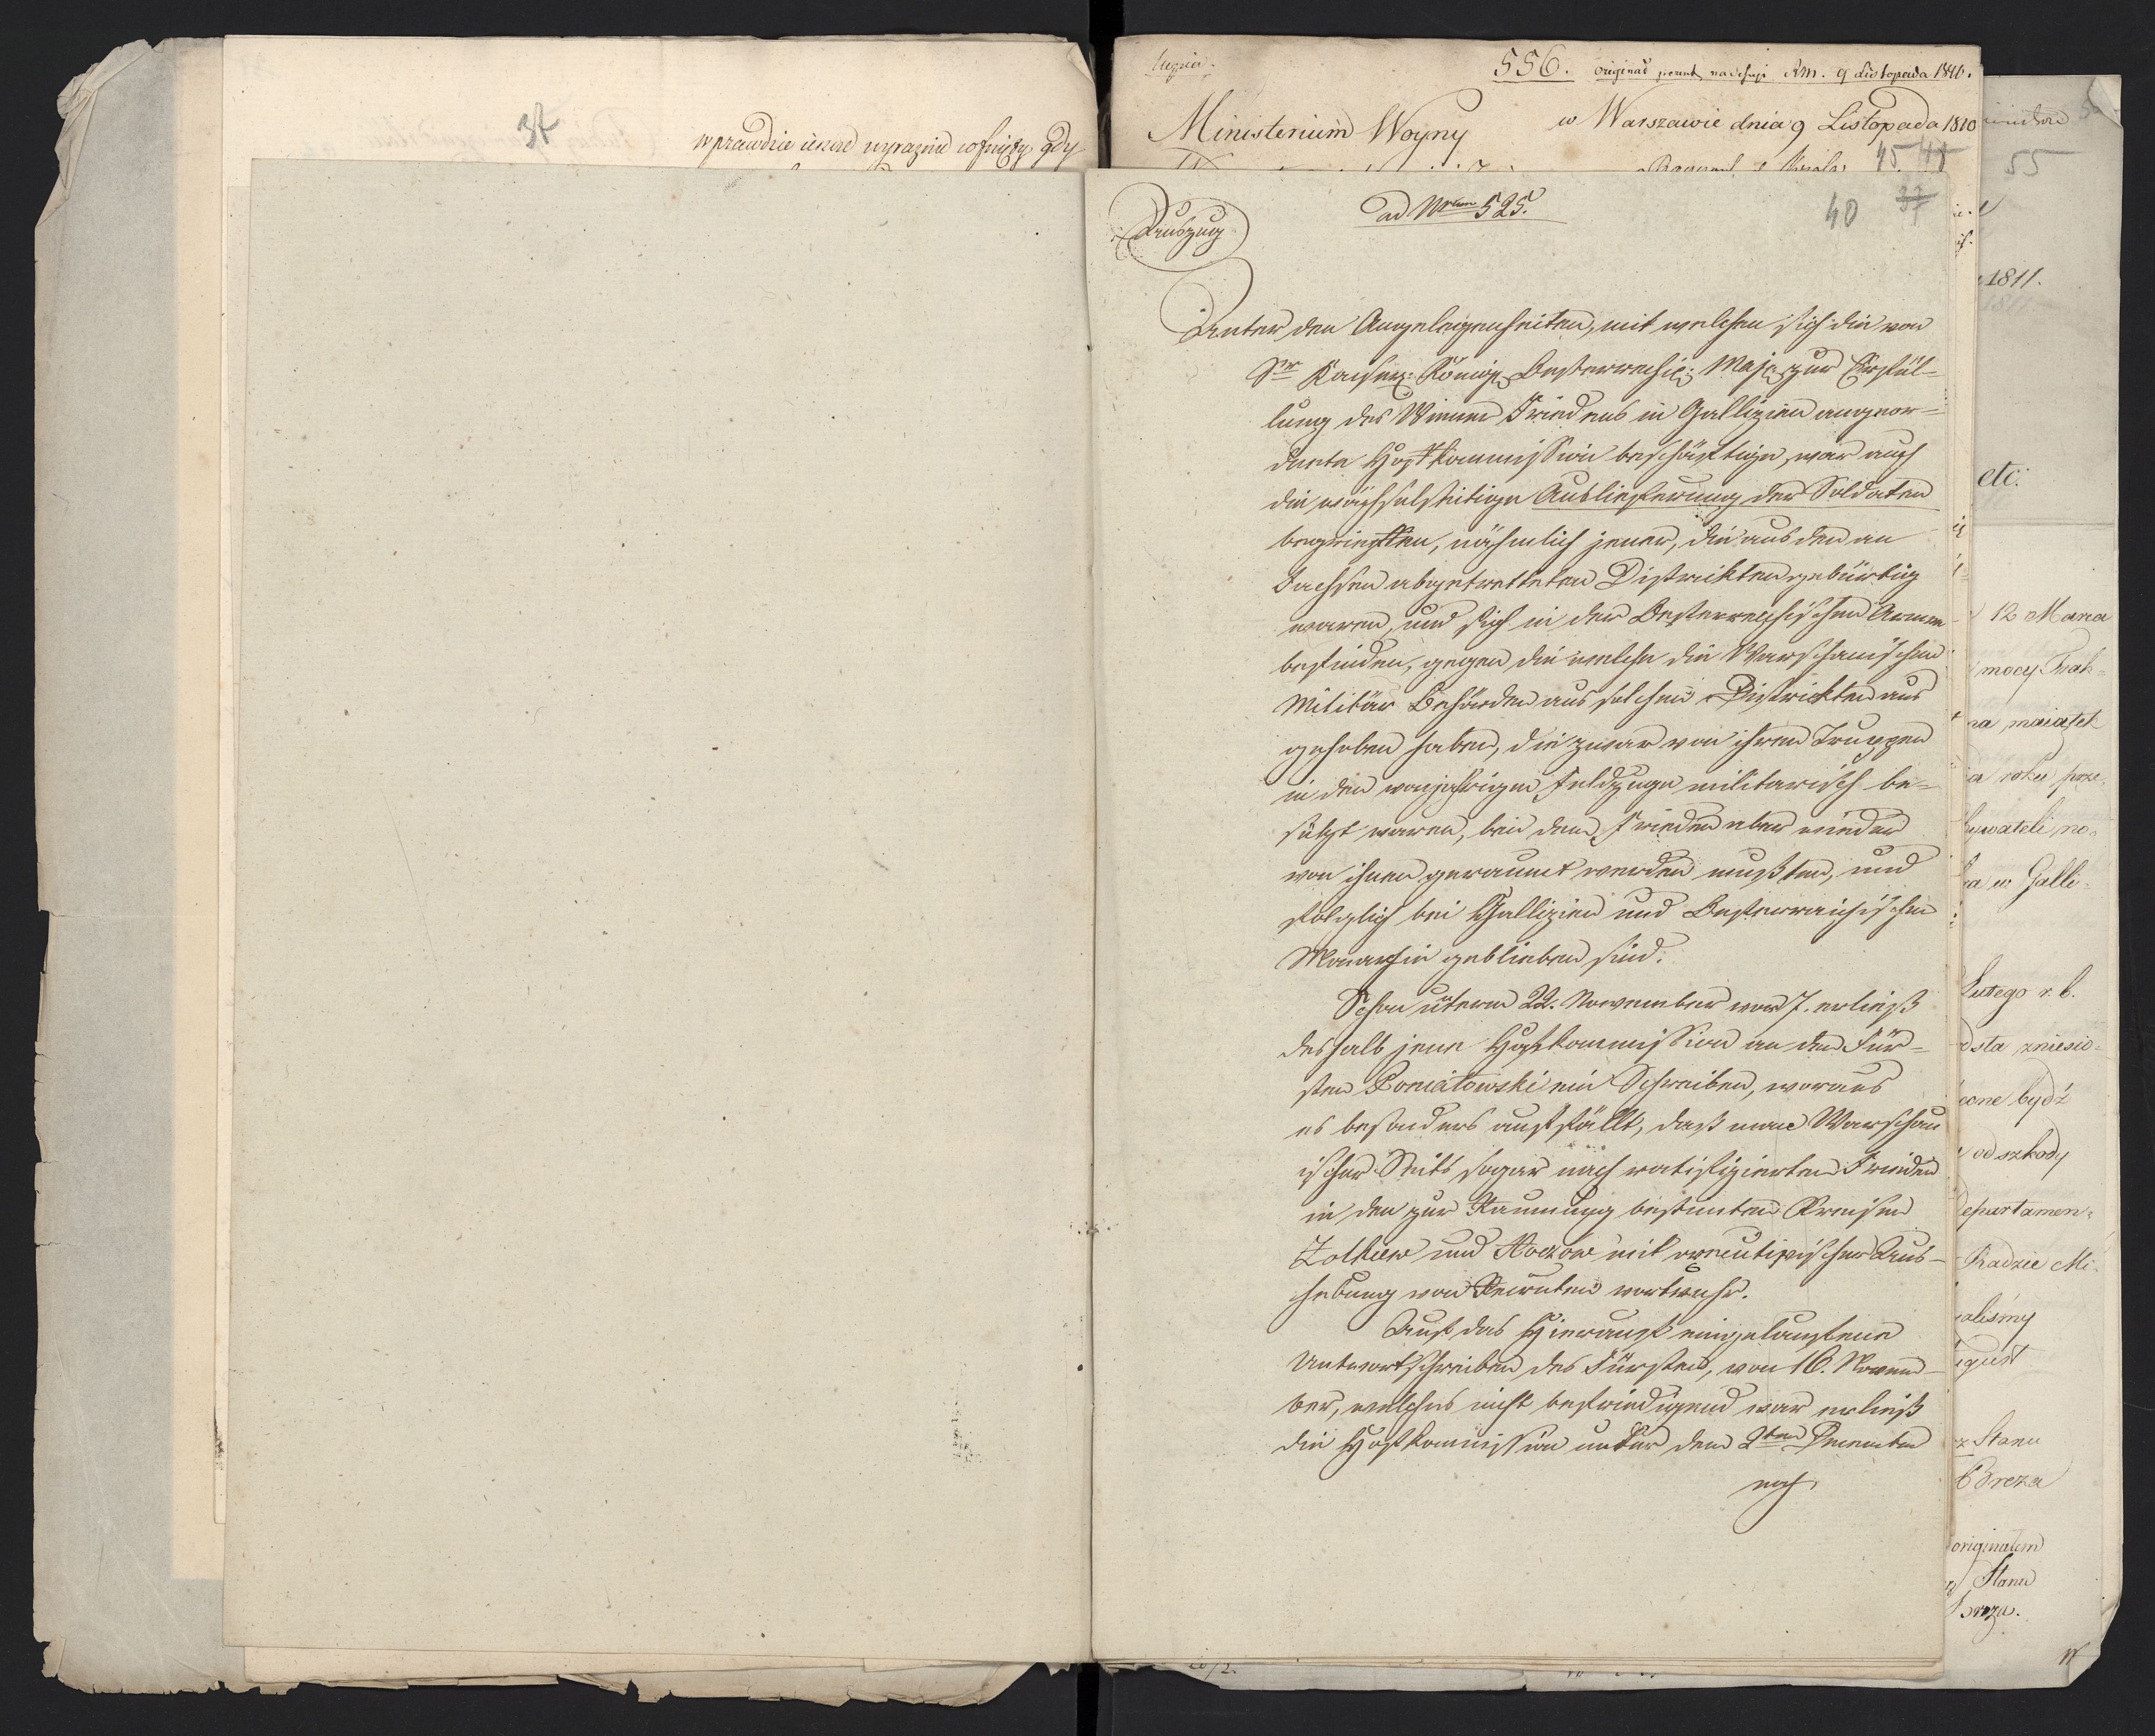 37
wprawdzie ukaz wyraznie cofnięty, gdy
556. originał
9 Listopada 1810.
Ministerium Woyny
w Warszawie dnia 9 Listopada 1810
45
55
ad Nrum 525.
40 37
Auszug
Unter den Angelegenheiten, mit welchen sich die von
Sr Kaiserl: Königl. Oesterreichi: Maj: zur Erfül-
lung des Wiener Friedens in Gallizien angeor-
dnete Hofkommission beschäftige, war auch
die wächselseitige Auslieferung der Soldaten
begrieffen, nähmlich jener, die aus den an
Sachsen abgetrettenen Distrikten gebürtig
waren, und sich in der Oesterreichischen Armee
befinden, gegen die welche die Warschauischen
Militär Behörden aus solchen Distrikten aus
gehoben haben, die zwar von ihren Truppen
in den vorjährigen Feldzuge militarisch be-
setzt waren, bei dem Frieden aber wieder
von ihnen geraumt werden mußten, und
folglich bei Gallizien und Oesterreichischen
Monarchie geblieben sind.
Schon unterm 22. November vor J. erließ
deshalb jene Hofkommission an den Für-
sten Poniatowski ein Schreiben, woraus
es besonders auffällt, daß man Warschau
ischer Seits sogar nach ratifizierten Frieden
in den zur Raumung bestimten Kreisen
Zolkiew und Zloczow mit executivischer Aus-
hebung von Recruten vortfuhr.
Auf das Hierauf eingelaufene
Antwortschreiben des Fürsten, von 16. Novem-
ber, welches nicht befriedigend war erließ
die Hofkommission unter dem 2ten Decembr
noch
1811.
etc:
12 Marca
mocy Trak-
na maiątek
roku prze
no-
w Galli-
Lutego r. b.
zniesio-
bydź
od szkody
Departamen-
Radzie Mi-
Stanu
Breza
originałem
Stanu
Breza.